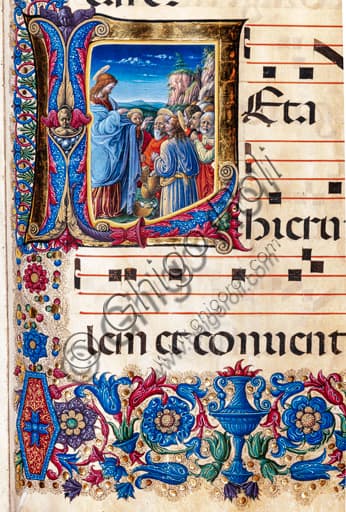 LEta
hieru
lem et conuent
© Ghigo Roli
www.ghigoroli.com